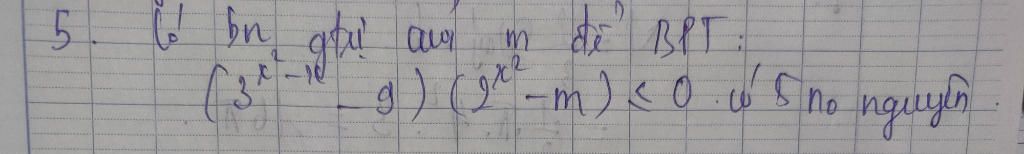 5. Có bn gtrị của m để BPT:
(3^{x^2-x} - 9)(2^{x^2} - m) ≤ 0 có 5 no nguyên.